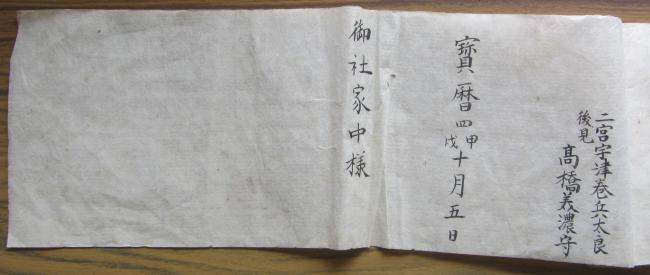 二宮宇津巻兵太良
後見
髙橋美濃守
寶暦四甲戌十月五日
御社家中様